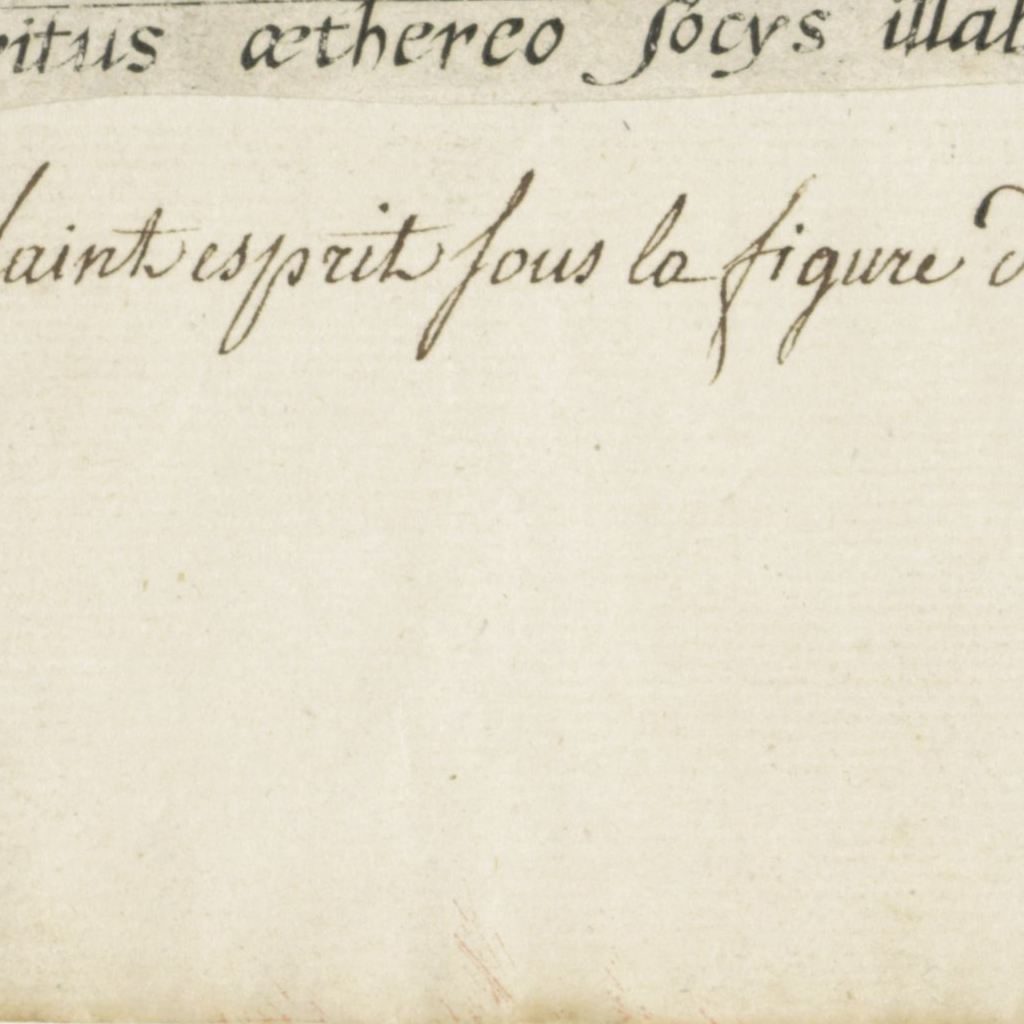 ritus æthereo socys illab
saint esprit sous la figure d